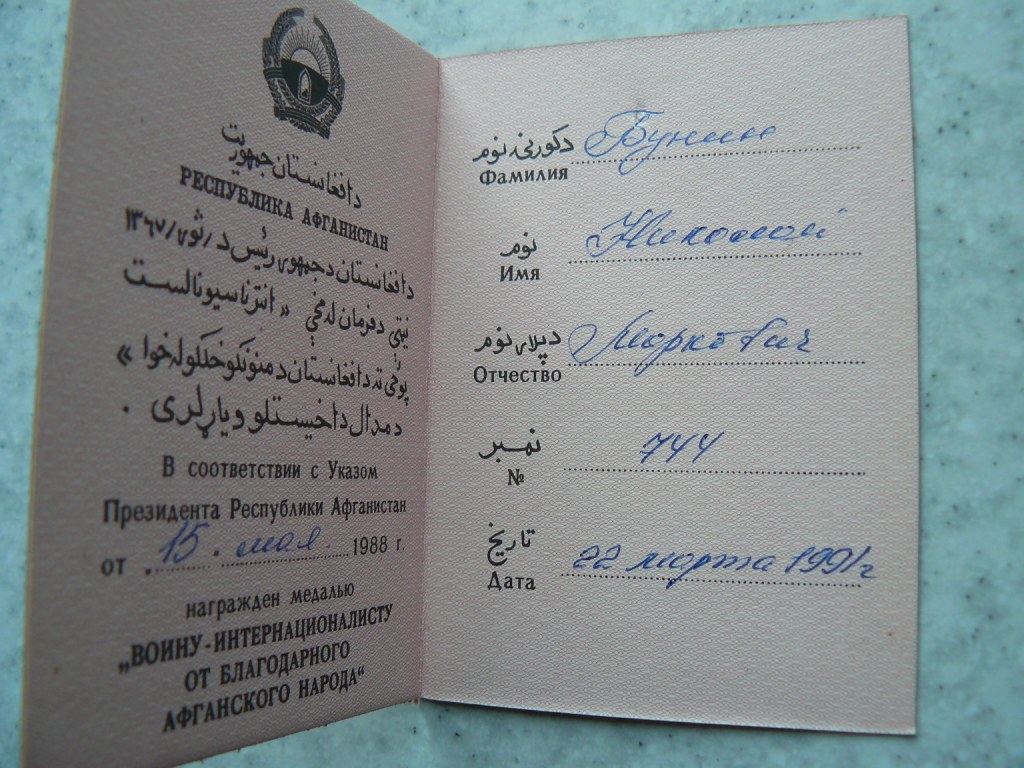 دافغانستان جمهوریت
РЕСПУБЛИКА АФГАНИСТАН
دافغانستان دجمهوری رئیس د /ثور/ ۱۳۶۷
نیټې دفرمان له مخې « انترناسیونالست
پوځی ته دافغانستان دمننوکوخلکو له خوا »
دمدال داخیستلو ویاړ لری .
В соответствии с Указом
Президента Республики Афганистан
от 15. мая 1988 г.
награжден медалью
„ВОИНУ-ИНТЕРНАЦИОНАЛИСТУ
ОТ БЛАГОДАРНОГО
АФГАНСКОГО НАРОДА“
دکورنۍ نوم Бунин
Фамилия
نوم Николай
Имя
دپلار نوم Маркович
Отчество
نمبر 744
№
تاریخ 22 марта 1991г
Дата